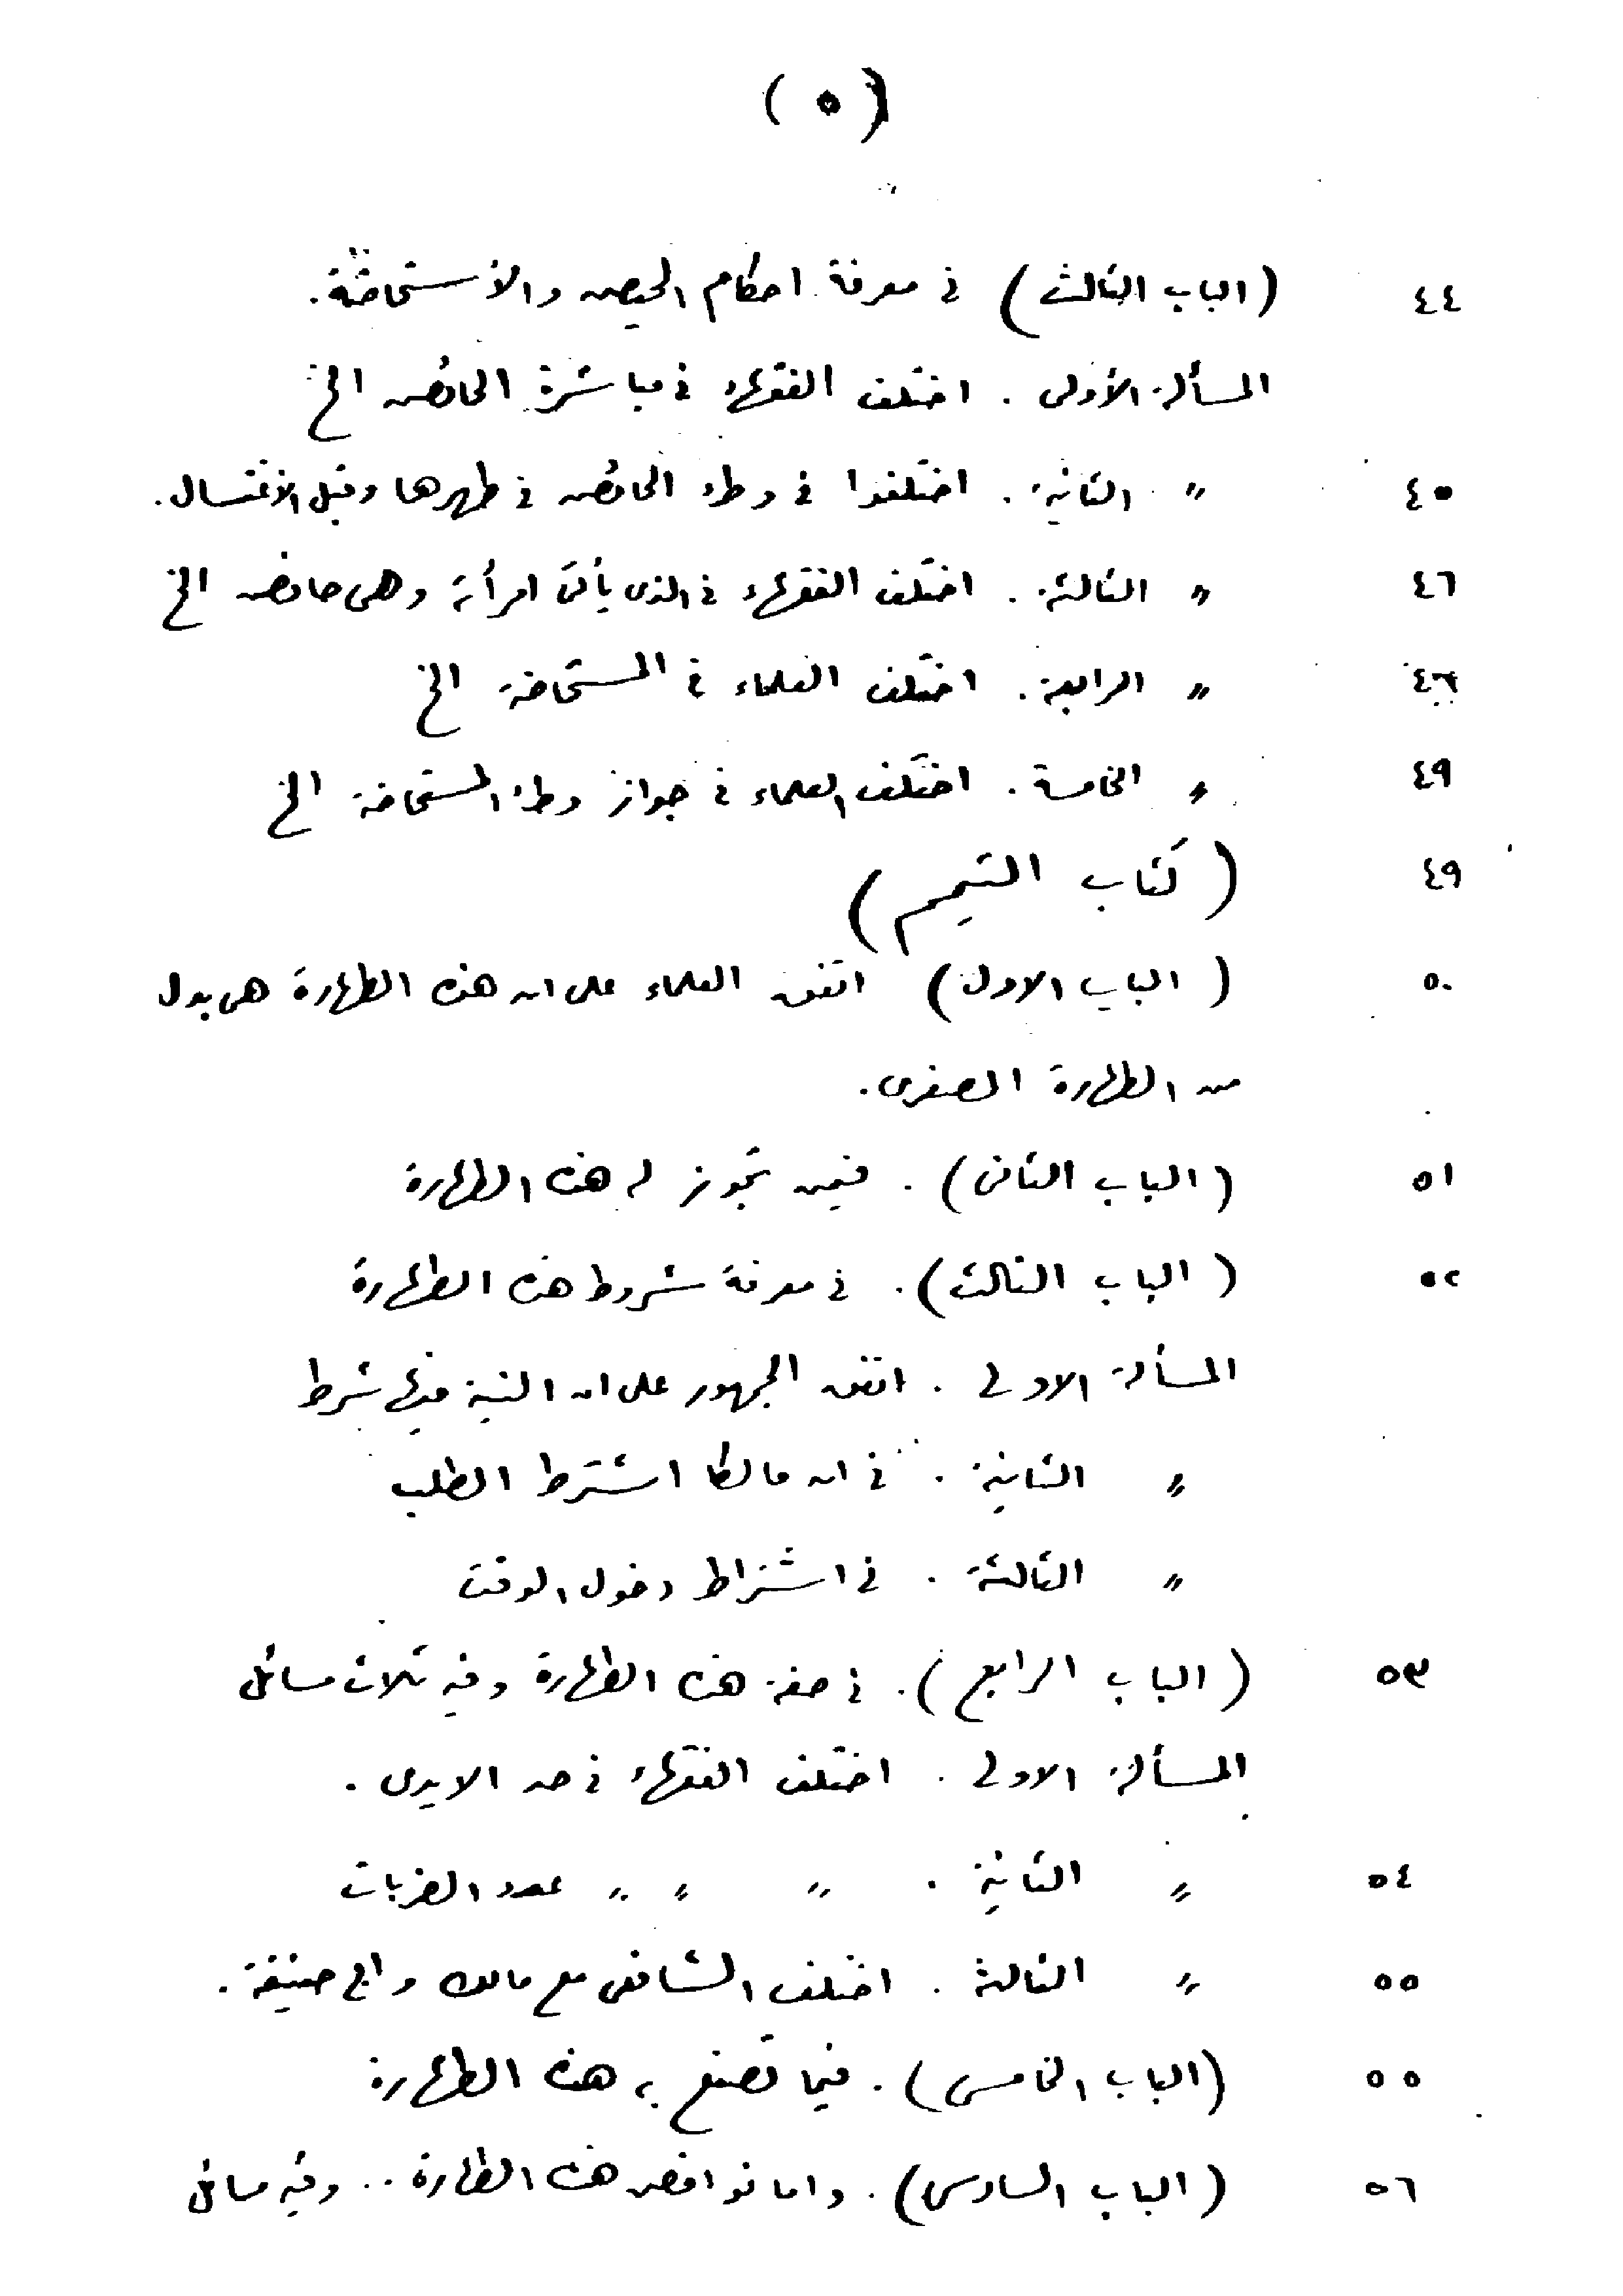 ( ٥ )
٤٤ (الباب الثالث) فى معرفة احكام الحيض والأستحاضة.
المسألة الأولى . اختلف الفقهاء فى مباشرة الحائض الخ
٤٥ " الثانية . اختلفوا فى وطء الحائض فى طهرها وقبل الأغتسال .
٤٦ " الثالثة . اختلف الفقهاء فى الذى يأتى امرأته وهى حائض الخ
٤٦ " الرابعة . اختلف العلماء فى المستحاضة الخ
٤٩ " الخامسة . اختلف العلماء فى جواز وطء المستحاضة الخ
٤٩ ( كتاب التيمم )
٥٠ ( الباب الاول ) اتفق العلماء على ان هذه الطهارة هى بدل
من الطهارة الصغرى .
٥١ ( الباب الثانى ) . فيمن تجوز له هذه الطهارة
٥٢ ( الباب الثالث ) . فى معرفة شروط هذه الطهارة
المسألة الاولى . اتفق الجمهور على ان النية فيها شرط
" الثانية . فى ان مالكا اشترط الطلب
" الثالثة . فى اشتراط دخول الوقت
٥٣ ( الباب الرابع ) . فى صفة هذه الطهارة وفيه ثلاث مسائل
المسألة الاولى . اختلف الفقهاء فى حد الايدى .
٥٤ " الثانية . " " " عدد الضربات
٥٥ " الثالثة . اختلف الشافعى مع مالك وابى حنيفة .
٥٥ (الباب الخامس ) . فيما تصنع به هذه الطهارة
٥٦ ( الباب السادس ) . واما نواقض هذه الطهارة .. وفيه مسائل